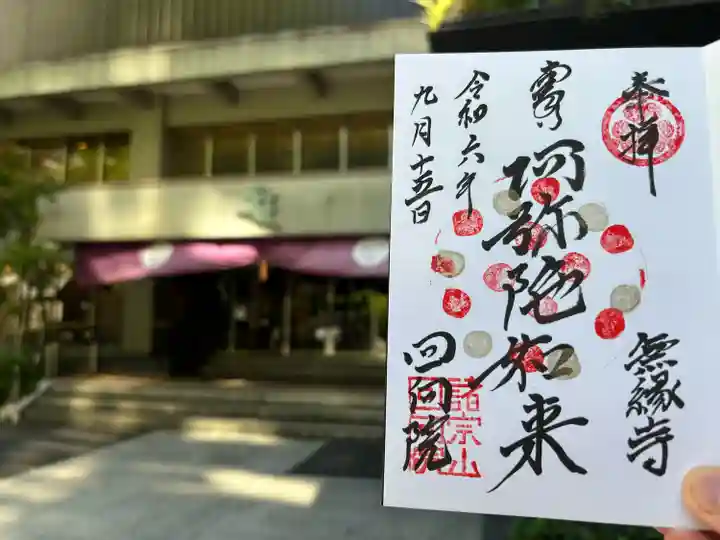 奉拝
無縁寺
寳 阿弥陀如来
令和六年
九月十五日
回向院
諸宗山